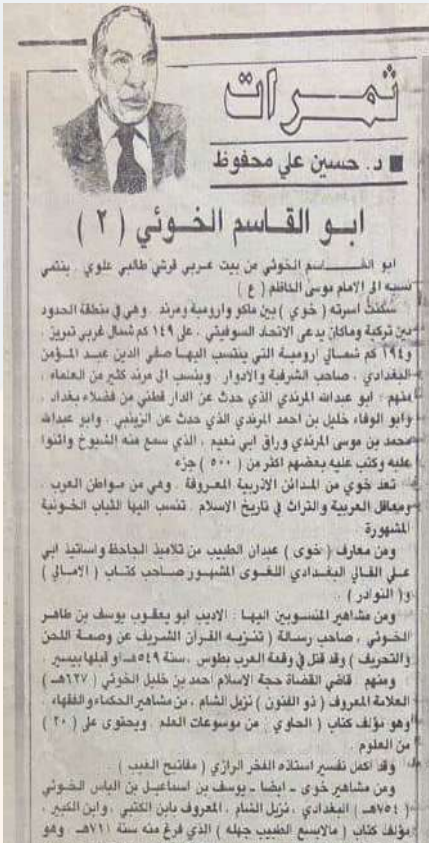 ثمرات
■ د. حسين علي محفوظ
ابو القاسم الخوئي ( ٢ )
ابو القاسم الخوئي من بيت عربي قرشي طالبي علوي . ينتمي
نسبه الى الامام موسى الكاظم ( ع )
سكنت اسرته ( خوي ) بين ماكو وارومية ومرند . وهي في منطقة الحدود
بين تركية وماكان يدعى الاتحاد السوفيتي . على ١٤٩ كم شمال غربي تبريز .
و١٩٤ كم شمالي ارومية التي ينتسب اليها صفي الدين عبد المؤمن
البغدادي ، صاحب الشرفية والادوار . وينسب الى مرند كثير من العلماء ،
منهم : ابو عبدالله المرندي الذي حدث عن الدار قطني من فضلاء بغداد .
وابو الوفاء خليل بن احمد المرندي الذي حدث عن الزينبي . وابو عبدالله
محمد بن موسى المرندي وراق ابي نعيم . الذي سمع منه الشيوخ واثنوا
عليه وكتب عليه بعضهم اكثر من ( ٥٠٠ ) جزء
تعد خوي من المدائن الاذرية المعروفة . وهي من مواطن العرب .
ومعاقل العربية والتراث في تاريخ الاسلام . تنسب اليها الثياب الخوئية
المشهورة
ومن معارف ( خوى ) عبدان الطبيب من تلاميذ الجاحظ واساتيذ ابي
على القالي البغدادي اللغوى المشهور صاحب كتاب ( الامالي )
و( النوادر ) ..
ومن مشاهير المنسوبين اليها : الاديب ابو يعقوب يوسف بن طاهر
الخوئي ، صاحب رسالة ( تنزيه القرآن الشريف عن وصمة اللحن
والتحريف ) وقد قتل في وقعة العرب بطوس . سنة ٥٤٩هـ او قبلها بيسير .
ومنهم قاضي القضاة حجة الاسلام احمد بن خليل الخوئي ( ٦٣٧هـ )
العلامة المعروف ( ذو الفنون ) نزيل الشام . من مشاهير الحكماء والفقهاء .
وهو مؤلف كتاب ( الحاوي ) من موسوعات العلم . ويحتوى على ( ٢٠ )
من العلوم .
وقد اكمل تفسير استاذه الفخر الرازي ( مفاتيح الغيب )
ومن مشاهير خوى - ايضا - يوسف بن اسماعيل بن الياس الخوئي
( ٧٥٤هـ ) البغدادي . نزيل الشام . المعروف بابن الكتبي . وابن الكبير .
مؤلف كتاب ( مالايسع الطبيب جهله ) الذي فرغ منه سنة ٧١١هـ . وهو